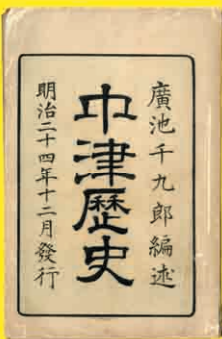 廣池千九郎編述
中津歷史
明治二十四年十二月發行